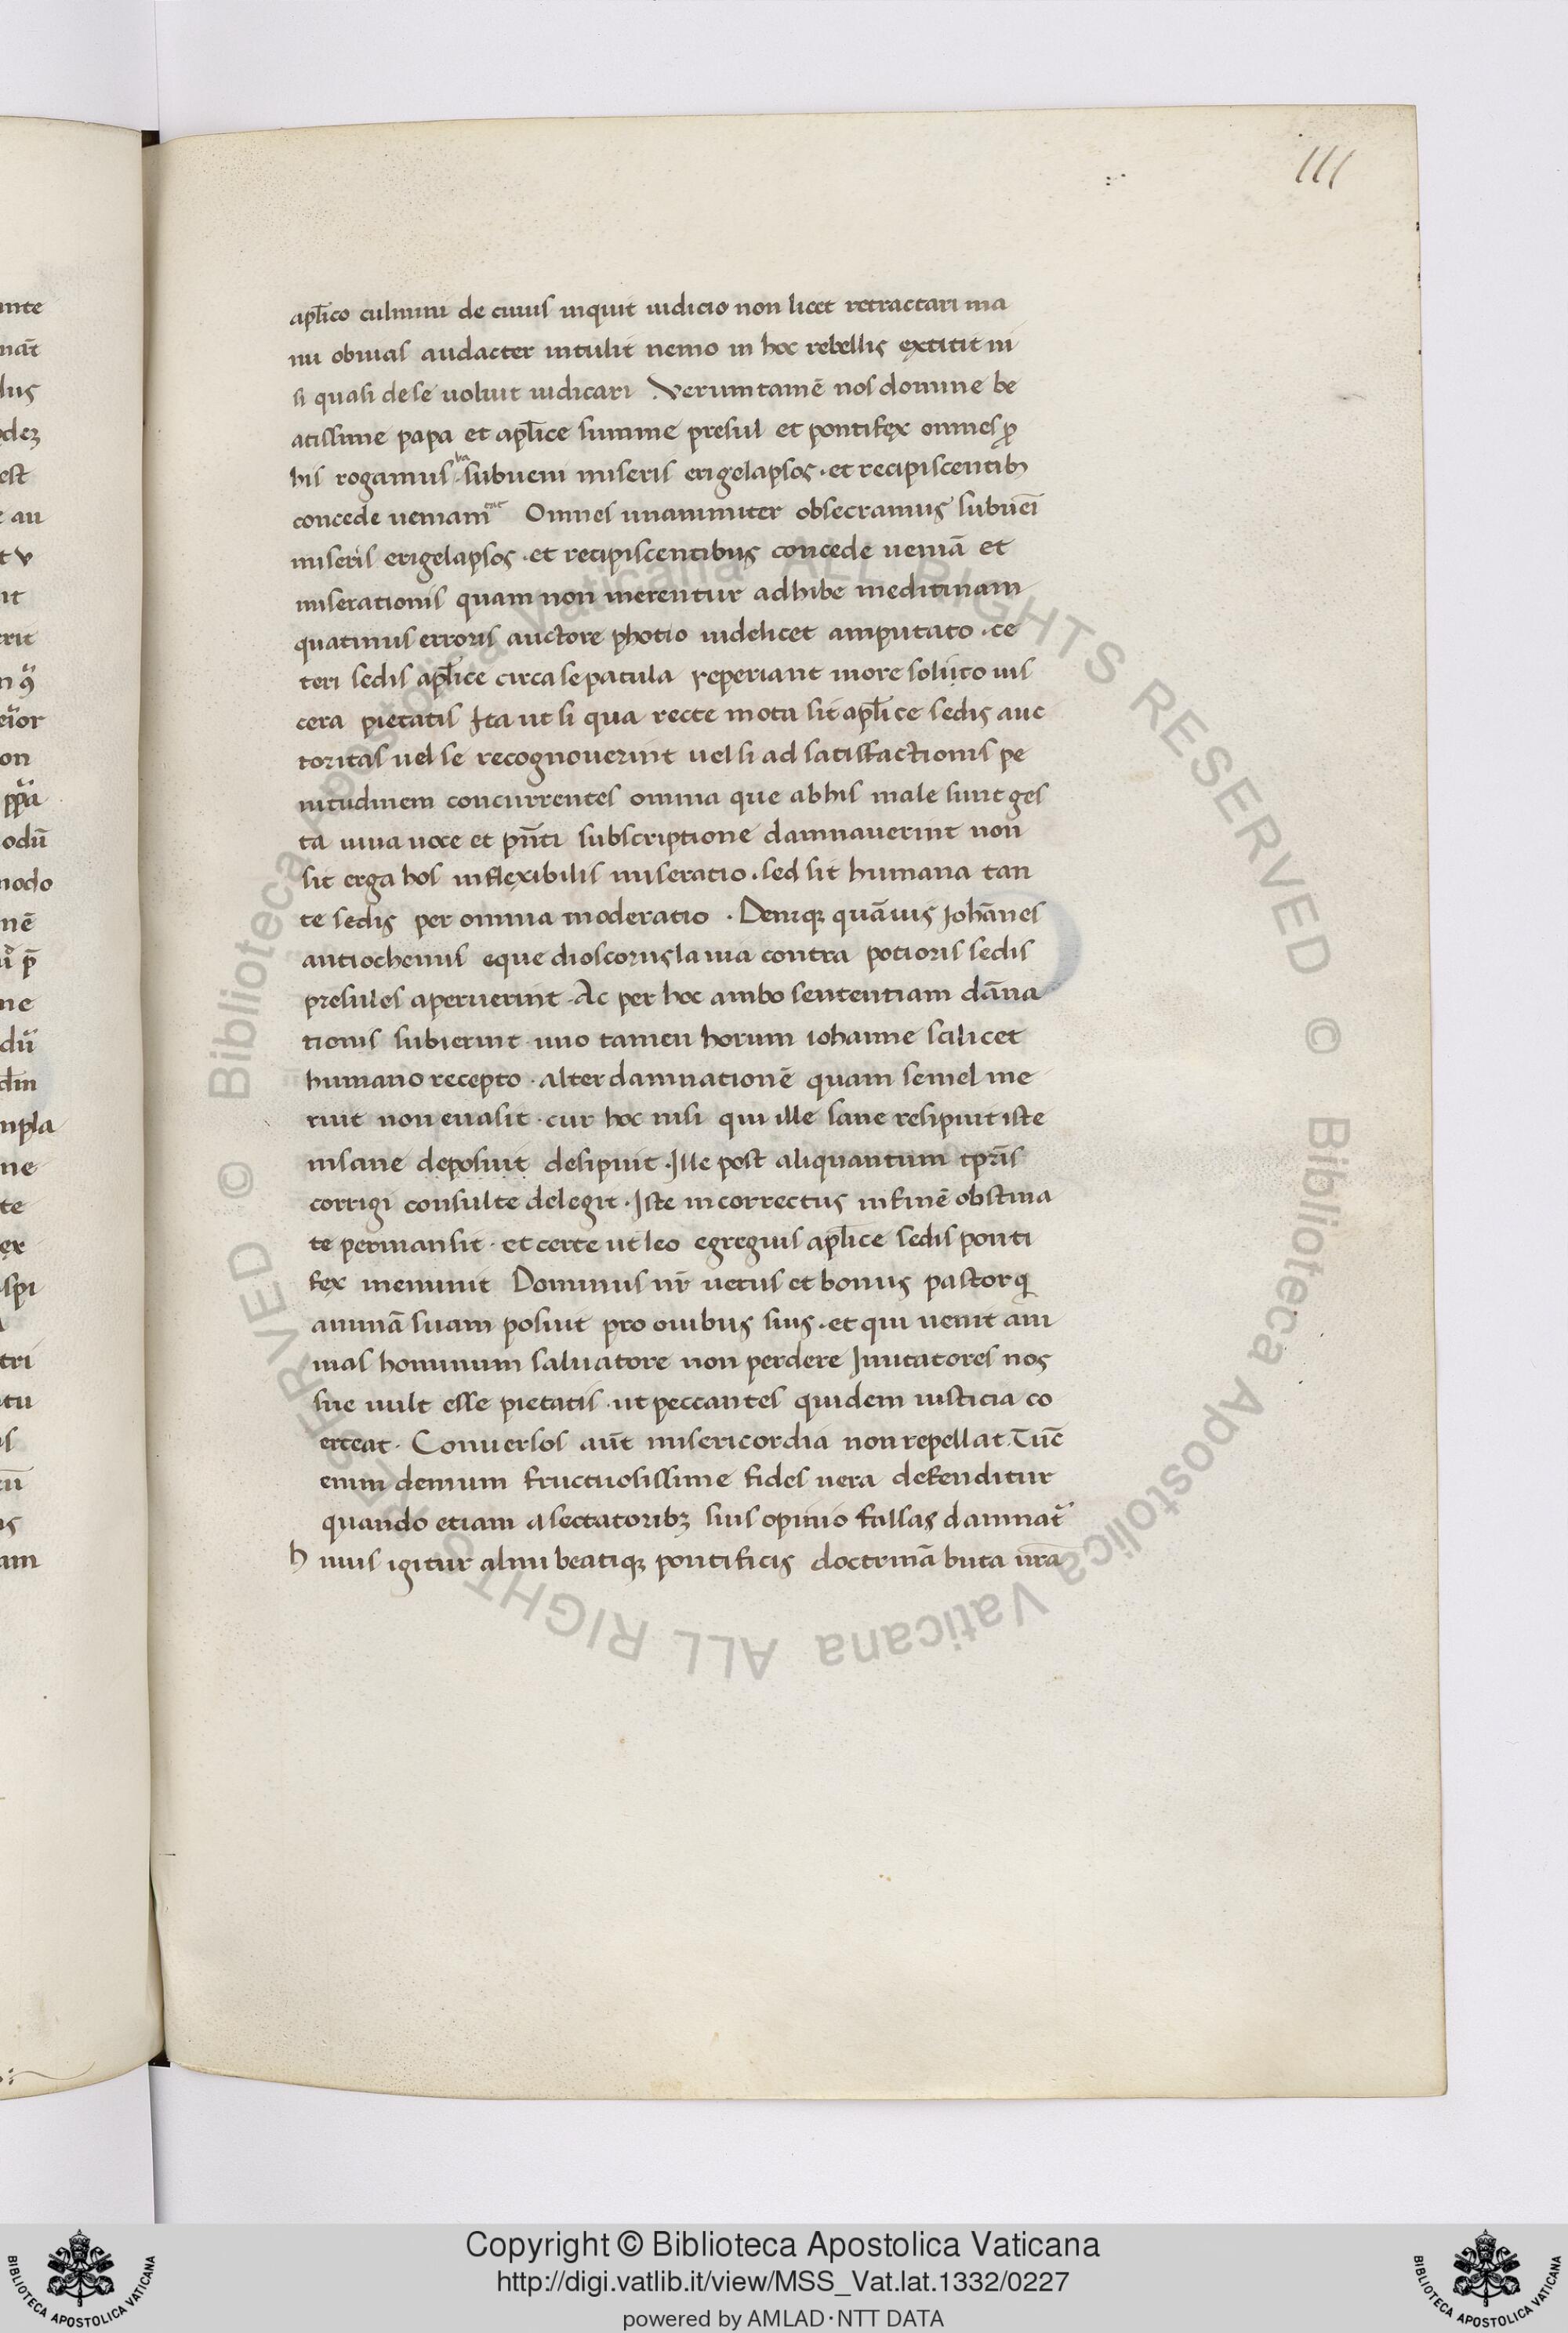 111
apl̅ico culmini de cuius inquit iudicio non licet retractari ma
nu obuias audacter intulit nemo in hoc rebellis extitit ni
si quasi de se uoluit iudicari Verumtamē nos domine be
atissime papa et apl̅ice summe presul et pontifex omnes ꝓ
his rogamus subueni miseris erige lapsos · et recipiscentib;
concede ueniam Omnes unanimiter obsecramus subueī
miseris erige lapsos · et recipiscentibus concede ueniā et
miserationis quam non merentur adhibe meditinam
quatinus erroris auctore photio uidelicet amputato · ce
teri sedis apl̅ice circa se patula reperiant more solito uis
cera pietatis Ita ut si qua recte mota sit apl̅ice sedis auc
toritas uel se recognouerint uel si ad satisfactionis pe
nitudinem concurrentes omnia que ab his male sunt ges
ta uiua uoce et pn̅ti subscriptione damnauerint non
sit erga hos inflexibilis miseratio · sed sit humana tan
te sedis per omnia moderatio · Deniqꝫ quāuis Iohānes
antiochenus eque dioscorus lania contra potioris sedis
presules aperuerint · Ac per hoc ambo sententiam dāna
tionis subierint · uno tamen horum iohanne scilicet
humano recepto · alter damnationē quam semel me
ruit non euasit · cur hoc nisi qui ille sane resipuit iste
insane deposuit desipuit · Ille post aliquantum tp̅ris
corrigi consulte delegit · Iste incorrectus in finē obstina
te permansit · et certe ut leo egregius apl̅ice sedis ponti
fex meminit Dominus nr̅ uerus et bonus pastor qͥ
animā suam posuit pro ouibus suis · et qui uenit ani
mas hominum saluatore non perdere Imitatores nos
sue uult esse pietatis · ut peccantes quidem iusticia co
erceat · Conuersos aut̅ misericordia non repellat · Tūc
enim demum fructuosissime fides uera defenditur
quando etiam a sectatoribꝫ suis opinio fallas damnat᷑
huius igitur almi beatiqꝫ pontificis doctrinā buta ur̅a
Copyright © Biblioteca Apostolica Vaticana
http://digi.vatlib.it/view/MSS_Vat.lat.1332/0227
powered by AMLAD·NTT DATA